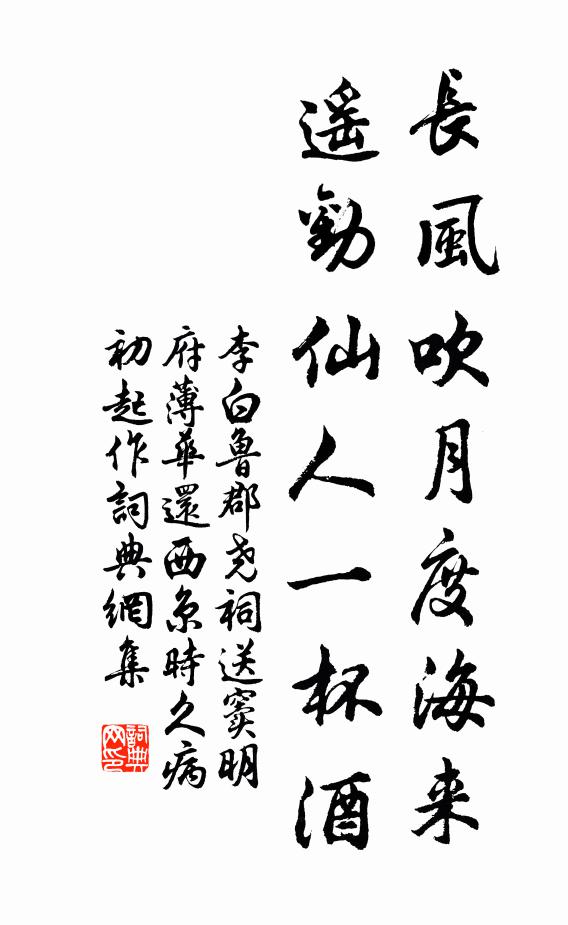 長風吹月度海来
遥勸仙人一杯酒
李白魯郡尧祠送窦明
府薄華還西京時久病
初起作詞典網集
詞典
网印